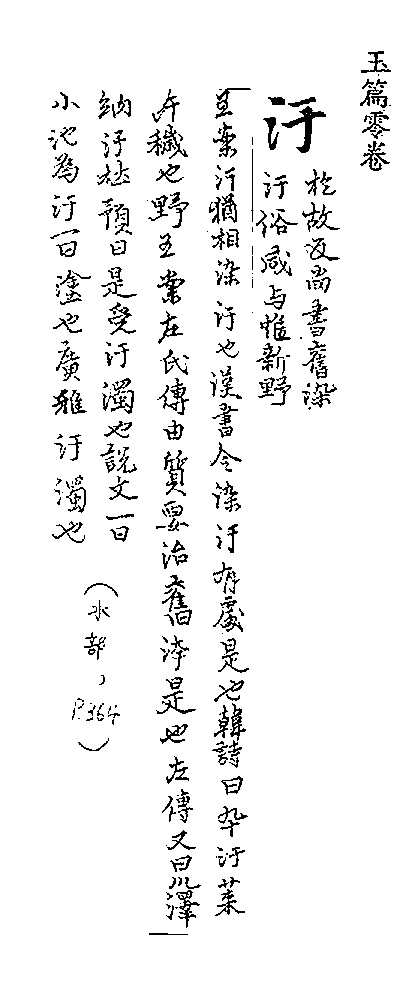 玉篇零卷
汙 於故反尚書舊染
汙俗咸与惟新野
王案汙猶相染汙也漢書令染汙有處是也韓詩曰卒汙萊
穢也野王案左氏傳由質要治舊洿是也左傳又曰川澤
納汙杜預曰是受汙濁也說文一曰
小池為汙一曰塗也廣雅汙濁也
(水部,P.364)